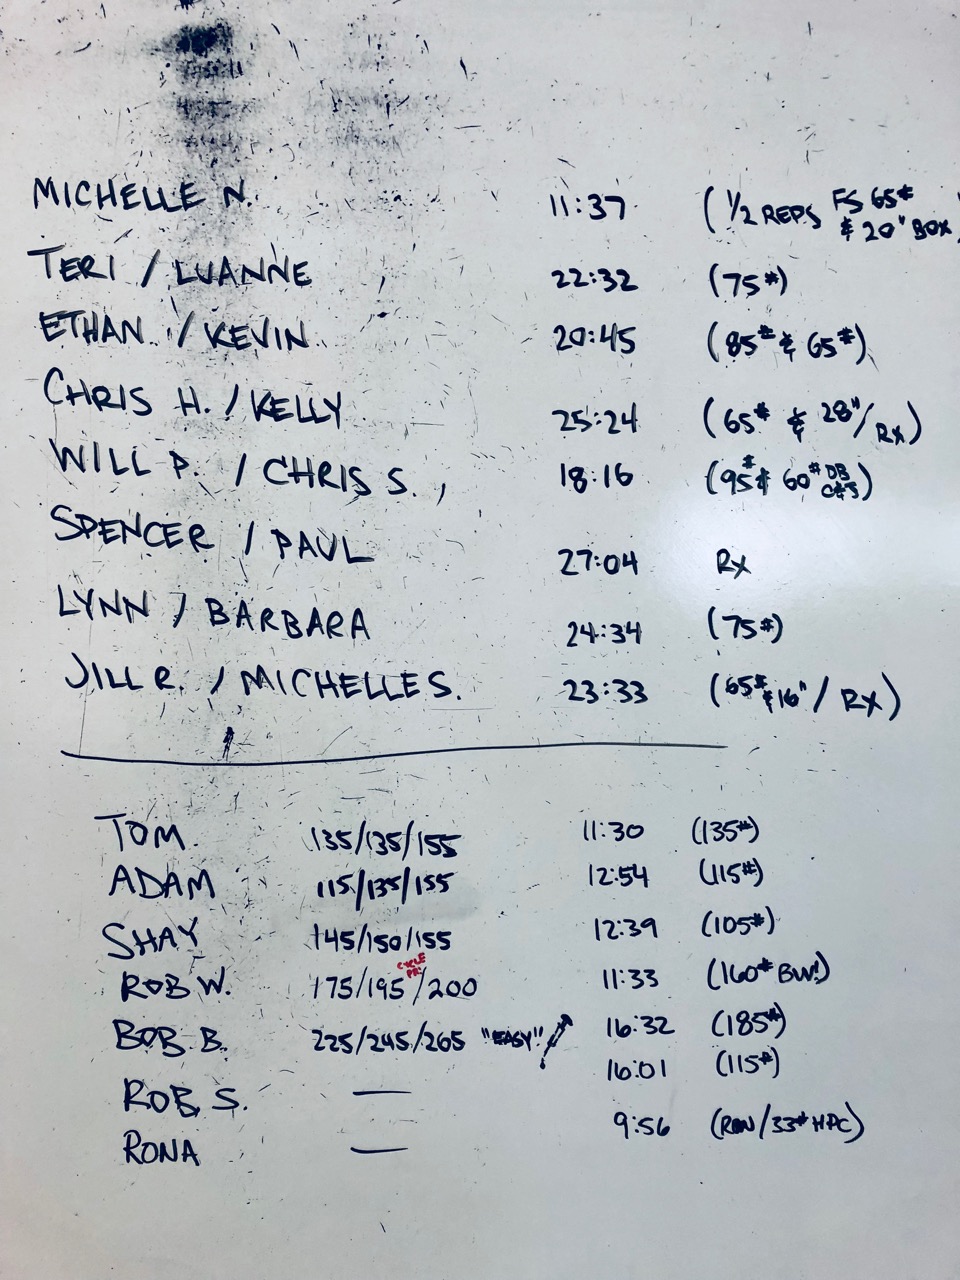 MICHELLE N. 11:37 (1/2 REPS FS 65# & 20" BOX)
TERI / LUANNE 22:32 (75#)
ETHAN / KEVIN 20:45 (85# & 65#)
CHRIS H. / KELLY 25:24 (65# & 28"/RX)
WILL P. / CHRIS S. 18:16 (95# & 60# DB C&J'S)
SPENCER / PAUL 27:04 RX
LYNN / BARBARA 24:34 (75#)
JILL R. / MICHELLE S. 23:33 (65# & 16" / RX)
TOM 135/135/155 11:30 (135#)
ADAM 115/135/155 12:54 (115#)
SHAY 145/150/155 12:39 (105#)
CYCLE PR!
ROB W. 175/195/200 11:33 (160# BW!)
BOB B. 225/245/265 "EASY!!" 16:32 (185#)
ROB S. — 16:01 (115#)
RONA — 9:56 (ROW/33# HPC)